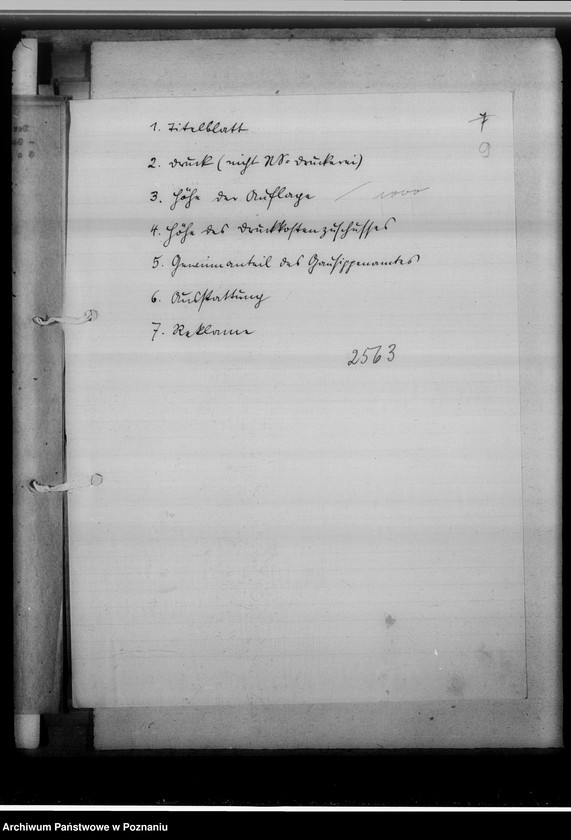 7
9
1. Titelblatt
2. Druck (nicht NS-Druckerei)
3. Höhe der Auflage / 1000
4. Höhe des Druckkostenzuschusses
5. Gewinnanteil des Gausippenamtes
6. Ausstattung
7. Reklame
2563
Archiwum Państwowe w Poznaniu